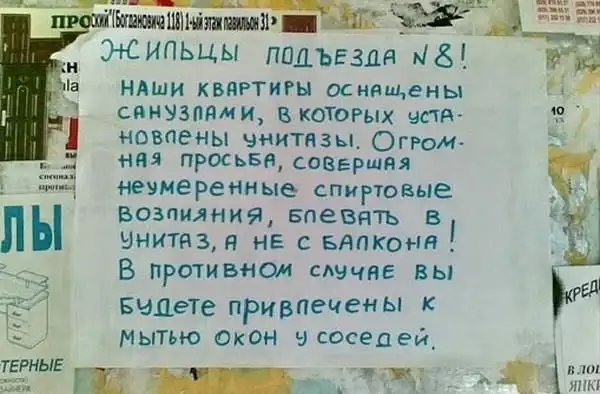 (Богдановича 118) 1-ый этаж павильон 31
ЖИЛЬЦЫ ПОДЪЕЗДА N8!
НАШИ КВАРТИРЫ ОСНАЩЕНЫ
САНУЗЛАМИ, В КОТОРЫХ УСТА-
НОВЛЕНЫ УНИТАЗЫ. ОГРОМ-
НАЯ ПРОСЬБА, СОВЕРШАЯ
НЕУМЕРЕННЫЕ СПИРТОВЫЕ
ВОЗЛИЯНИЯ, БЛЕВАТЬ В
УНИТАЗ, А НЕ С БАЛКОНА!
В ПРОТИВНОМ СЛУЧАЕ ВЫ
БУДЕТЕ ПРИВЛЕЧЕНЫ К
МЫТЬЮ ОКОН У СОСЕДЕЙ.
ЛЫ
ТЕРНЫЕ
КРЕД
В ЛО
ЯНК